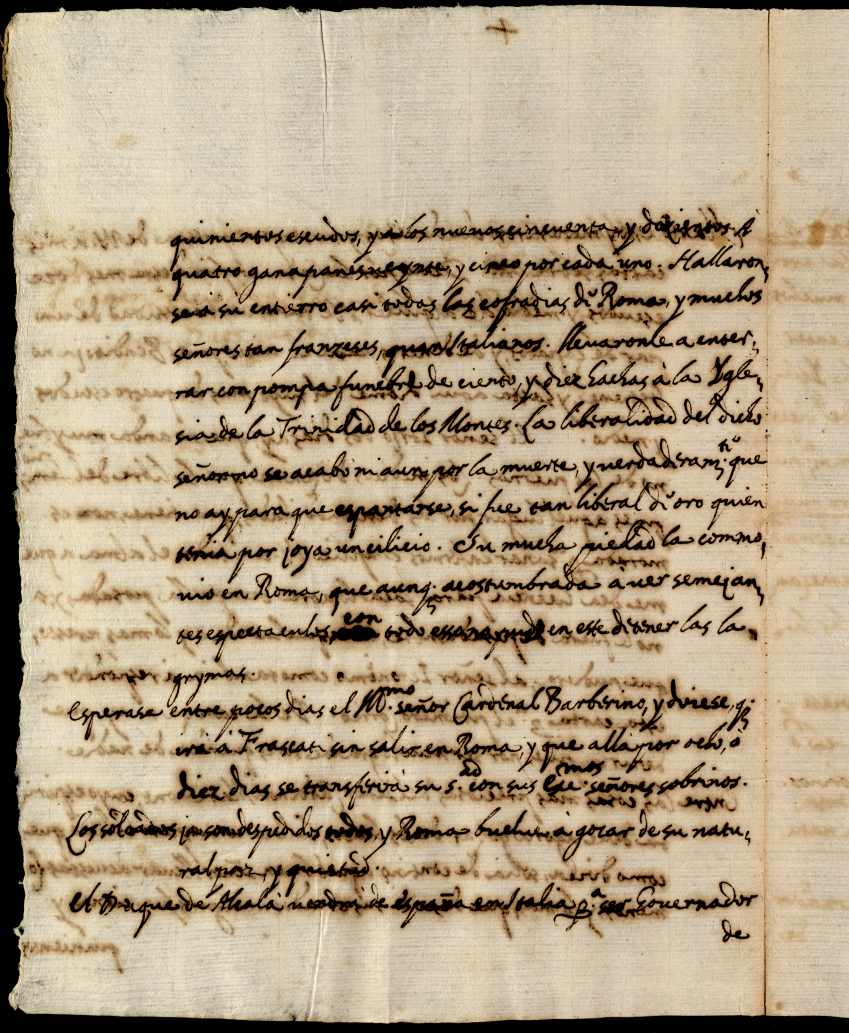 quinientos escudos, y a los nuevos cincuenta, y dozientos. A
quatro ganapanes veynte, y cinco por cada uno. Hallaron,
se a su entierro casi todas las cofradias de Roma, y muchos
señores tan franzeses, quan Italianos. llevaronle a enter,
rar con pompa funebre de ciento, y diez hachas à la Ygle,
sia de la Trinidad de los Montes. La liberalidad del dicho
señor no se acabo ni aun por la muerte, y verdaderam.te que
no ay para que espantarse, si fue tan liberal de oro quien
tenia por joya un cilicio. Su mucha piedad la commo,
vio en Roma, que aunq. acostumbrada a ver semejan,
tes espectaculos, con todo esso no pudo en este detener las la,
grymas.
Esperase entre pocos dias el Ill.mo señor Cardenal Barberino, y dizese, q.
irà à Frascati sin salir en Roma, y que alla por ocho, ò
diez dias se transferirà su S.ad con sus Exc.mos señores sobrinos.
Los soldados ja son despedidos todos, y Roma buelve à gozar de su natu,
ral paz, y quietud.
el Duque de Alcalà vendrà de españa en Italia p.a ser Governador
de